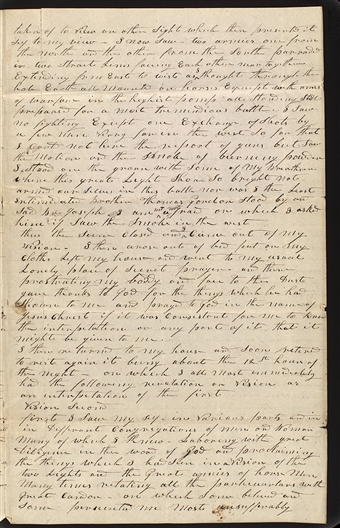 taken of to view an other sight which then presented it
self to my view - I now saw - two armies one from
the North and the other from the South parraded
in two strait lines faceing Each other man to man
Extending from East to west as I thought through the
hole Earth all mounted on horses Equipt with arms
of warfare in the highist pomp all standing still
prepared for a mete for mendious battle I saw
no fighting Except one Exchange of shots by
a few where Rong far in the west So far that
I could not hear the report of guns but Saw
the Motion and the Smoke of burning powder
I stood on the ground with Some of my Brethren
where this great light Shone so bright not
armed our Selves in this battle nor was I the least
intimidated Brother Thomas
Said Bro Joseph I am afraid on which I asked
him if I saw the Smoke in the west
then the Seine Closed and Came out of my
Vision - I then arose out of bed put on my
Clothes left my house and went to my usual
Lonely place of Secret prayer - and there
prostrating my body and face to the Dust
gave thanks to God for the things which he had
Shown to me and prayd to god in the name of
Jesus Christ if it was Consistent for me to know
the interpitation or any parts of it that it
might be given to me.
I then returned to my house and Soon retired
to rest again it being about the 12th hour of
the night - on which I all most immediately
had the following revelation or Vision as
an interpitation of the first
Vision Second
First I Saw my Self in Various parts and in
in Different Congregations of Men and Woman
Many of which I knew - Laboring with great
Diligence in the word of God and proclaming
the things which I had Seen in a Vision of the
two Lights and the Great armies of horse Men
Many times relating all the particulars with
great Candor - on which Some believed and
Some persecuted me Most